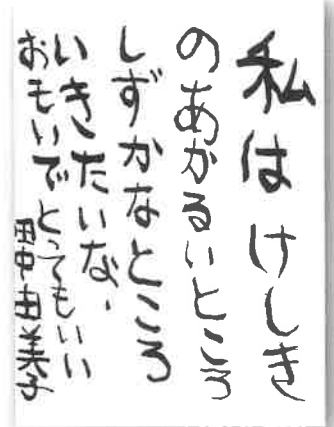 私は けしき
のあかるいところ
しずかなところ
いきたいな、
おもいで とってもいい
田中由美子